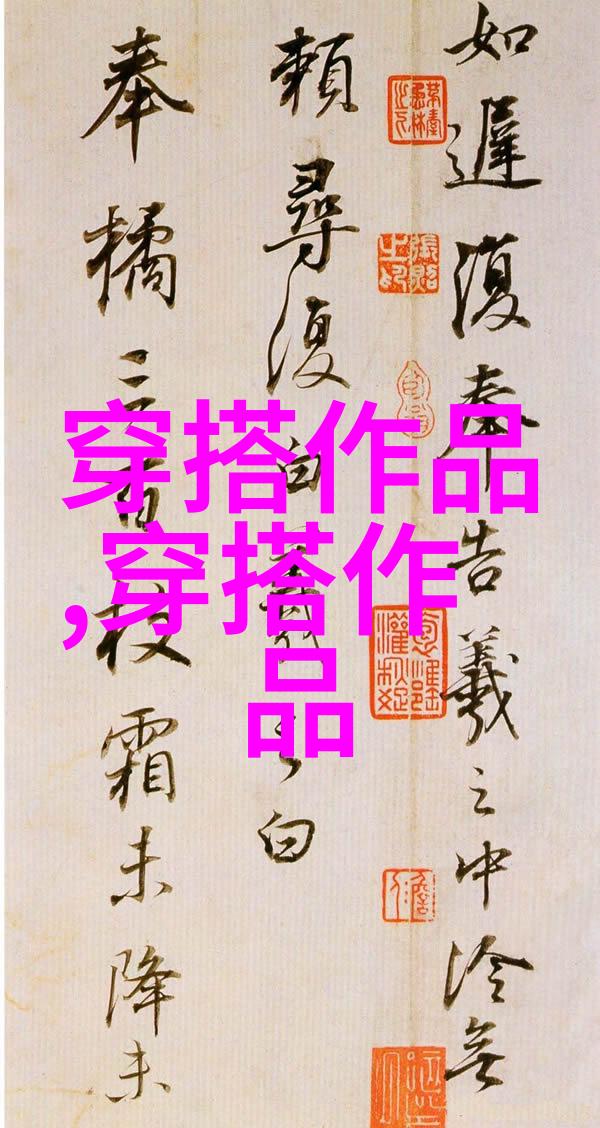 如遲復奉告羲之中冷無
賴尋復白羲之白
奉橘三百枚霜未降未
穿搭作品
,穿搭作
品